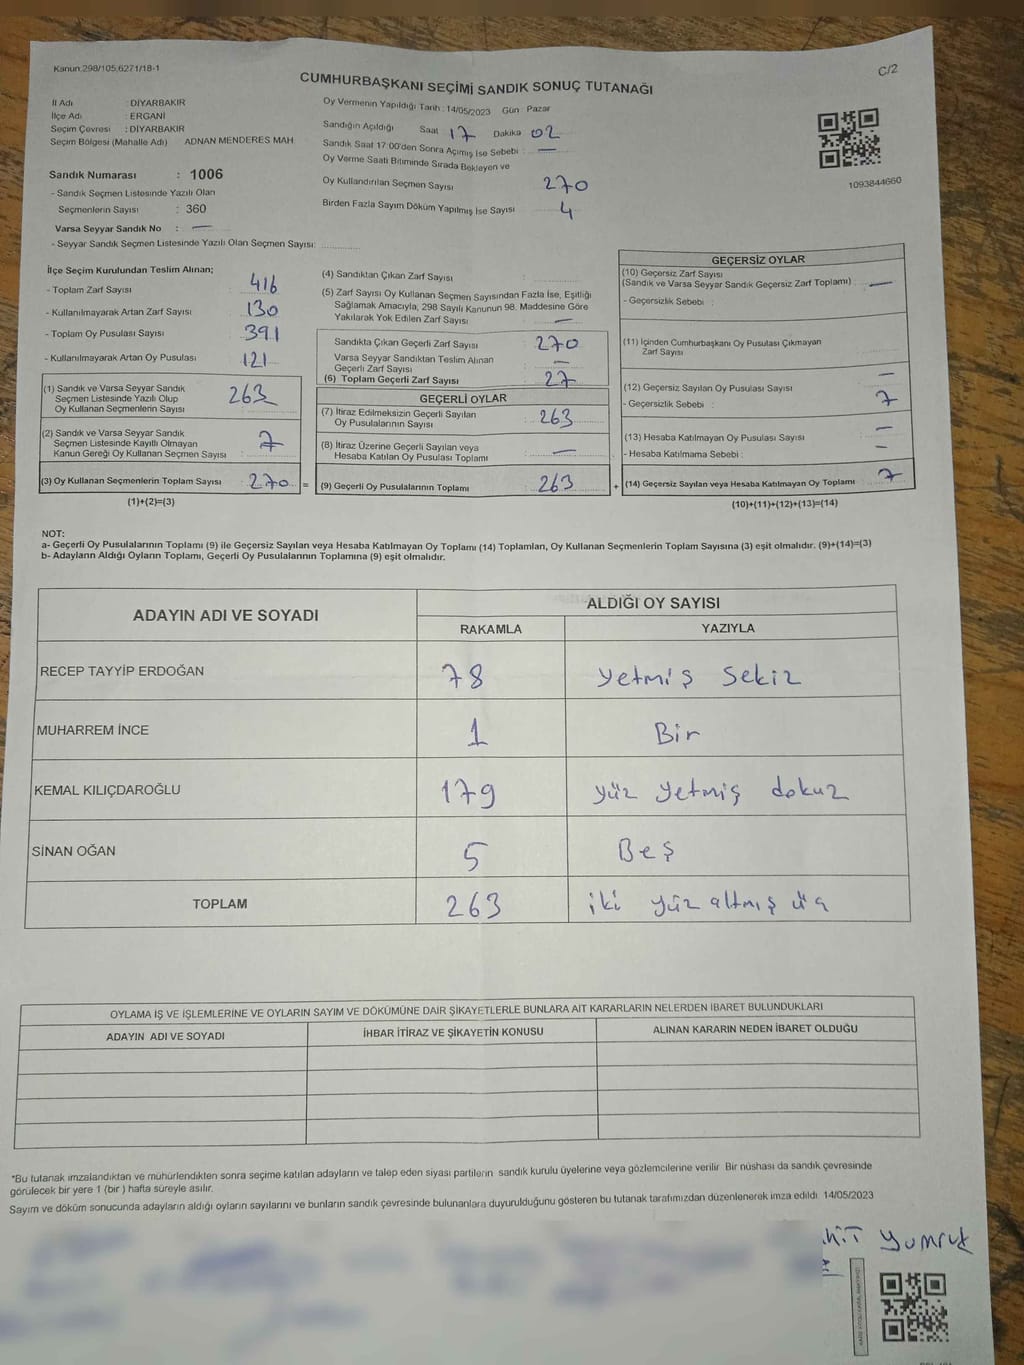 Kanun:298/105;6271/18-1
C/2
CUMHURBAŞKANI SEÇİMİ SANDIK SONUÇ TUTANAĞI
İl Adı : DİYARBAKIR
İlçe Adı : ERGANİ
Seçim Çevresi : DİYARBAKIR
Seçim Bölgesi (Mahalle Adı) ADNAN MENDERES MAH
Sandık Numarası : 1006
- Sandık Seçmen Listesinde Yazılı Olan
Seçmenlerin Sayısı : 360
Varsa Seyyar Sandık No : —
- Seyyar Sandık Seçmen Listesinde Yazılı Olan Seçmen Sayısı: ............
Oy Vermenin Yapıldığı Tarih : 14/05/2023 Gün Pazar
Sandığın Açıldığı Saat 17 Dakika 02
Sandık Saat 17:00'den Sonra Açımış İse Sebebi : —
Oy Verme Saati Bitiminde Sırada Bekleyen ve
Oy Kullandırılan Seçmen Sayısı 270
Birden Fazla Sayım Döküm Yapılmış İse Sayısı 4
1093844660
İlçe Seçim Kurulundan Teslim Alınan;
- Toplam Zarf Sayısı 416
- Kullanılmayarak Artan Zarf Sayısı 130
- Toplam Oy Pusulası Sayısı 391
- Kullanılmayarak Artan Oy Pusulası 121
(1) Sandık ve Varsa Seyyar Sandık
Seçmen Listesinde Yazılı Olup
Oy Kullanan Seçmenlerin Sayısı 263
(2) Sandık ve Varsa Seyyar Sandık
Seçmen Listesinde Kayıtlı Olmayan
Kanun Gereği Oy Kullanan Seçmen Sayısı 7
(3) Oy Kullanan Seçmenlerin Toplam Sayısı 270 =
(1)+(2)=(3)
(4) Sandıktan Çıkan Zarf Sayısı
(5) Zarf Sayısı Oy Kullanan Seçmen Sayısından Fazla İse, Eşitliği
Sağlamak Amacıyla, 298 Sayılı Kanunun 98. Maddesine Göre
Yakılarak Yok Edilen Zarf Sayısı —
Sandıkta Çıkan Geçerli Zarf Sayısı 270
Varsa Seyyar Sandıktan Teslim Alınan
Geçerli Zarf Sayısı —
(6) Toplam Geçerli Zarf Sayısı 27
GEÇERLİ OYLAR
(7) İtiraz Edilmeksizin Geçerli Sayılan
Oy Pusulalarının Sayısı 263
(8) İtiraz Üzerine Geçerli Sayılan veya
Hesaba Katılan Oy Pusulası Toplamı —
(9) Geçerli Oy Pusulalarının Toplamı 263 +
GEÇERSİZ OYLAR
(10) Geçersiz Zarf Sayısı
(Sandık ve Varsa Seyyar Sandık Geçersiz Zarf Toplamı) —
- Geçersizlik Sebebi :
(11) İçinden Cumhurbaşkanı Oy Pusulası Çıkmayan
Zarf Sayısı —
(12) Geçersiz Sayılan Oy Pusulası Sayısı
- Geçersizlik Sebebi : 7
(13) Hesaba Katılmayan Oy Pusulası Sayısı —
- Hesaba Katılmama Sebebi : —
(14) Geçersiz Sayılan veya Hesaba Katılmayan Oy Toplamı 7
(10)+(11)+(12)+(13)=(14)
NOT:
a- Geçerli Oy Pusulalarının Toplamı (9) ile Geçersiz Sayılan veya Hesaba Katılmayan Oy Toplamı (14) Toplamları, Oy Kullanan Seçmenlerin Toplam Sayısına (3) eşit olmalıdır. (9)+(14)=(3)
b- Adayların Aldığı Oyların Toplamı, Geçerli Oy Pusulalarının Toplamına (9) eşit olmalıdır.
ADAYIN ADI VE SOYADI
ALDIĞI OY SAYISI
RAKAMLA YAZIYLA
RECEP TAYYİP ERDOĞAN 78 Yetmiş Sekiz
MUHARREM İNCE 1 Bir
KEMAL KILIÇDAROĞLU 179 yüz yetmiş dokuz
SİNAN OĞAN 5 Beş
TOPLAM 263 iki yüz altmış üç
OYLAMA İŞ VE İŞLEMLERİNE VE OYLARIN SAYIM VE DÖKÜMÜNE DAİR ŞİKAYETLERLE BUNLARA AİT KARARLARIN NELERDEN İBARET BULUNDUKLARI
ADAYIN ADI VE SOYADI İHBAR İTİRAZ VE ŞİKAYETİN KONUSU ALINAN KARARIN NEDEN İBARET OLDUĞU
*Bu tutanak imzalandıktan ve mühürlendikten sonra seçime katılan adayların ve talep eden siyasi partilerin sandık kurulu üyelerine veya gözlemcilerine verilir Bir nüshası da sandık çevresinde
görülecek bir yere 1 (bir ) hafta süreyle asılır.
Sayım ve döküm sonucunda adayların aldığı oyların sayılarını ve bunların sandık çevresinde bulunanlara duyurulduğunu gösteren bu tutanak tarafımızdan düzenlenerek imza edildi. 14/05/2023
Yumruk